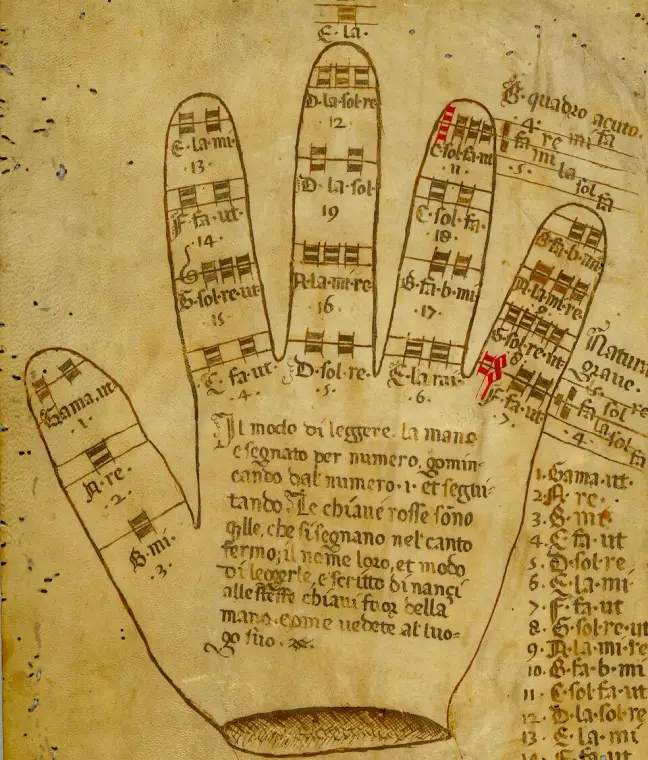 E·la·
D·la·sol·re
·12·
E·la·mi
·13·
F·fa·ut
·14·
G·sol·re·ut
·15·
C·fa·ut·
·4·
D·la·sol·
19
A·la·mi·re
·16·
D·sol·re·
·5·
C·sol·fa·ut
·11·
C·sol·fa·
·18·
B·fa·b·mi
·17·
E·la·mi·
·6·
B·fa·b·mi
A·la·mi·re
G·sol·re·ut
·8·
F·fa·ut
·7·
Gama·ut
·1·
A·re·
·2·
B·mi·
·3·
B·quadro acuto·
·4· re mi fa
fa mi la sol fa
·5·
Natura
graue·
fa sol re
la sol fa
·4·
Il modo di leggere la mano
e segnato per numero, comin-
cando dal numero·1· et segui-
tando Le chiaue rosse sono
qlle, che si segnano nel canto
fermo; il nome loro, et modo
di leggerle, e scritto di nanci
alle steffe chiaui fuor della
mano come uedete al luo-
go suo·
1·Gama·ut·
2·A·re·
3·B·mi·
4·C·fa·ut
5·D·sol·re
6·E·la·mi
7·F·fa·ut
8·G·sol·re·ut
9·A·la·mi·re
10·B·fa·b·mi
11·C·sol·fa·ut
12·D·la·sol·re
13·E·la·mi
14·F·fa·ut